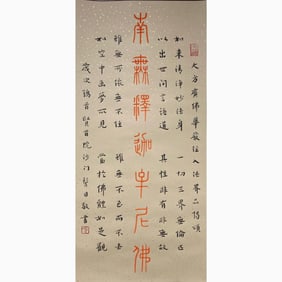 大方廣佛華嚴經入法界品偈頌
如來清淨妙法身 一切三界無倫匹
以出世間言語道 其性非有非無故
南無釋迦牟尼佛
雖無所依無不住 雖無不至而不去
如空中畫夢所見 當於佛體如是觀
歲次 首賢首院沙門 敬書